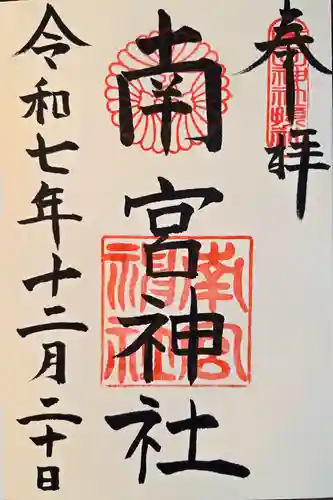 奉拝
南宮神社
令和七年十二月二十日
南宮神社